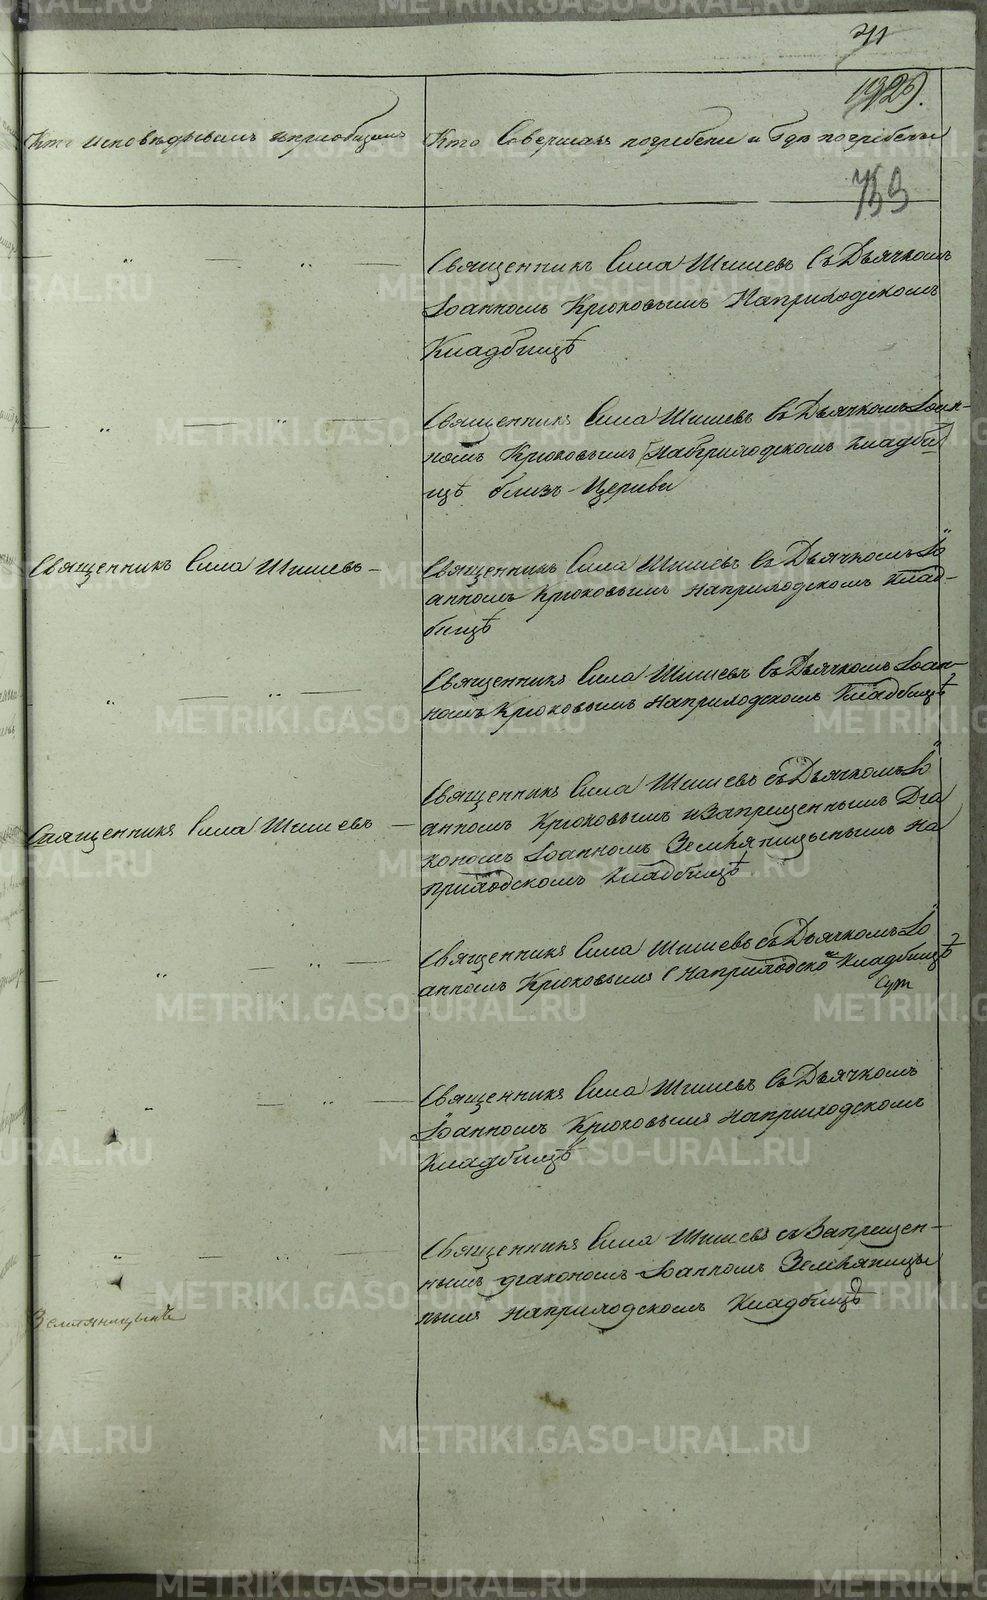 71
192
Кто исповѣдывалъ и приобщалъ
Кто Совершалъ погребение и Гдѣ погребены
Священникъ Сила Шишевъ Съ Дьячкомъ
Іоанномъ Крюковымъ На приходскомъ
Кладбищѣ
Священникъ Сила Шишевъ Съ Дьячкомъ Іоан-
номъ Крюковымъ на приходскомъ кладби
щѣ близъ Церкви
Священникъ Сила Шишевъ
Священникъ Сила Шишевъ Съ Дьячкомъ Іо
анномъ Крюковымъ на приходскомъ клад-
бищѣ
Священникъ Сила Шишевъ Съ Дьячкомъ Іоан-
номъ Крюковымъ на приходскомъ Кладбищѣ
Священникъ Сила Шишевъ
Священникъ Сила Шишевъ съ Дьячкомъ Іо
анномъ Крюковымъ и Запрещеннымъ Диа
кономъ Іоанномъ Земляницынымъ На
приходскомъ кладбищѣ
Священникъ Сила Шишевъ съ Дьячкомъ Іо
анномъ Крюковымъ на приходском Кладбищѣ
Священникъ Сила Шишевъ Съ Дьячкомъ
Іоанномъ Крюковымъ на приходскомъ
Кладбищѣ
Священникъ Сила Шишевъ съ Запрещен-
нымъ диакономъ Іоанномъ Земляницы
нымъ на приходскомъ Кладбищѣ
METRIKI.GASO-URAL.RU